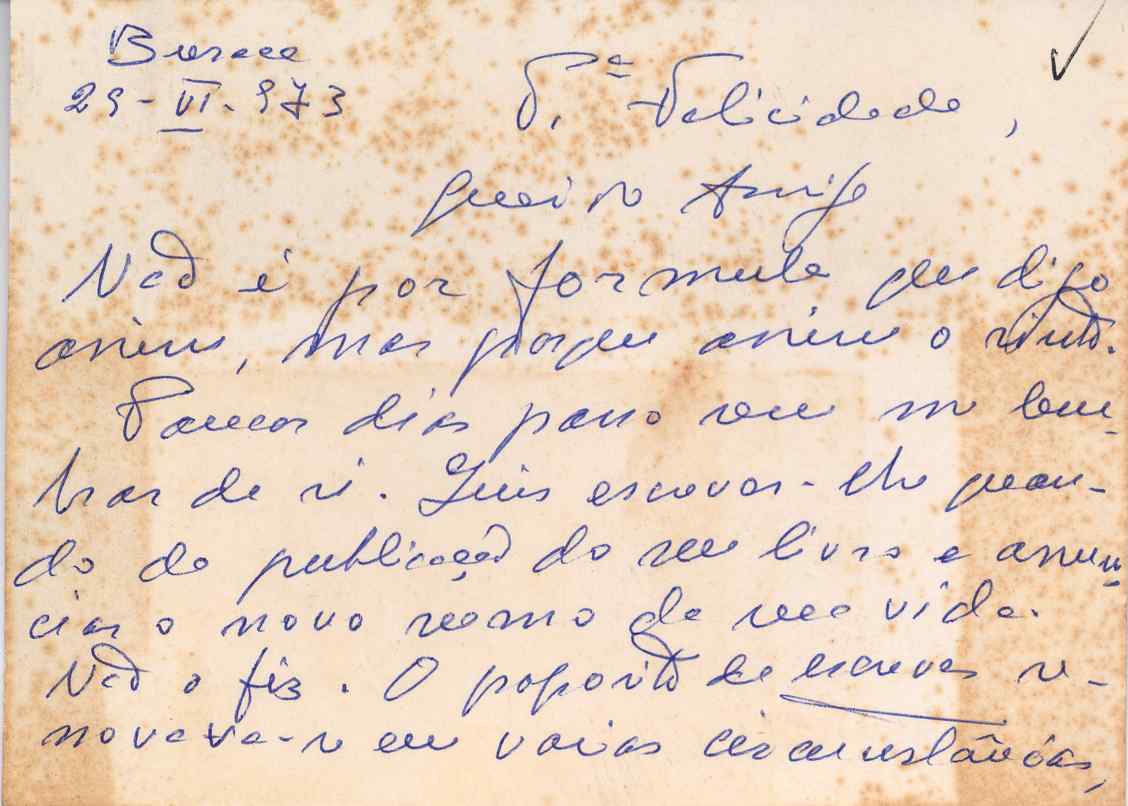 Buraca
29-VI-973
P.e Felicidade,
Querido Amigo
Não é por formula que digo
assim, mas porque assim o sinto.
Poucos dias passo sem me lem-
brar de si. Quis escrever-lhe quan-
do da publicação do seu livro e anun-
ciar o novo rumo da sua vida.
Não o fiz. O proposito de escrever re-
novava-se em varias circunstâncias,